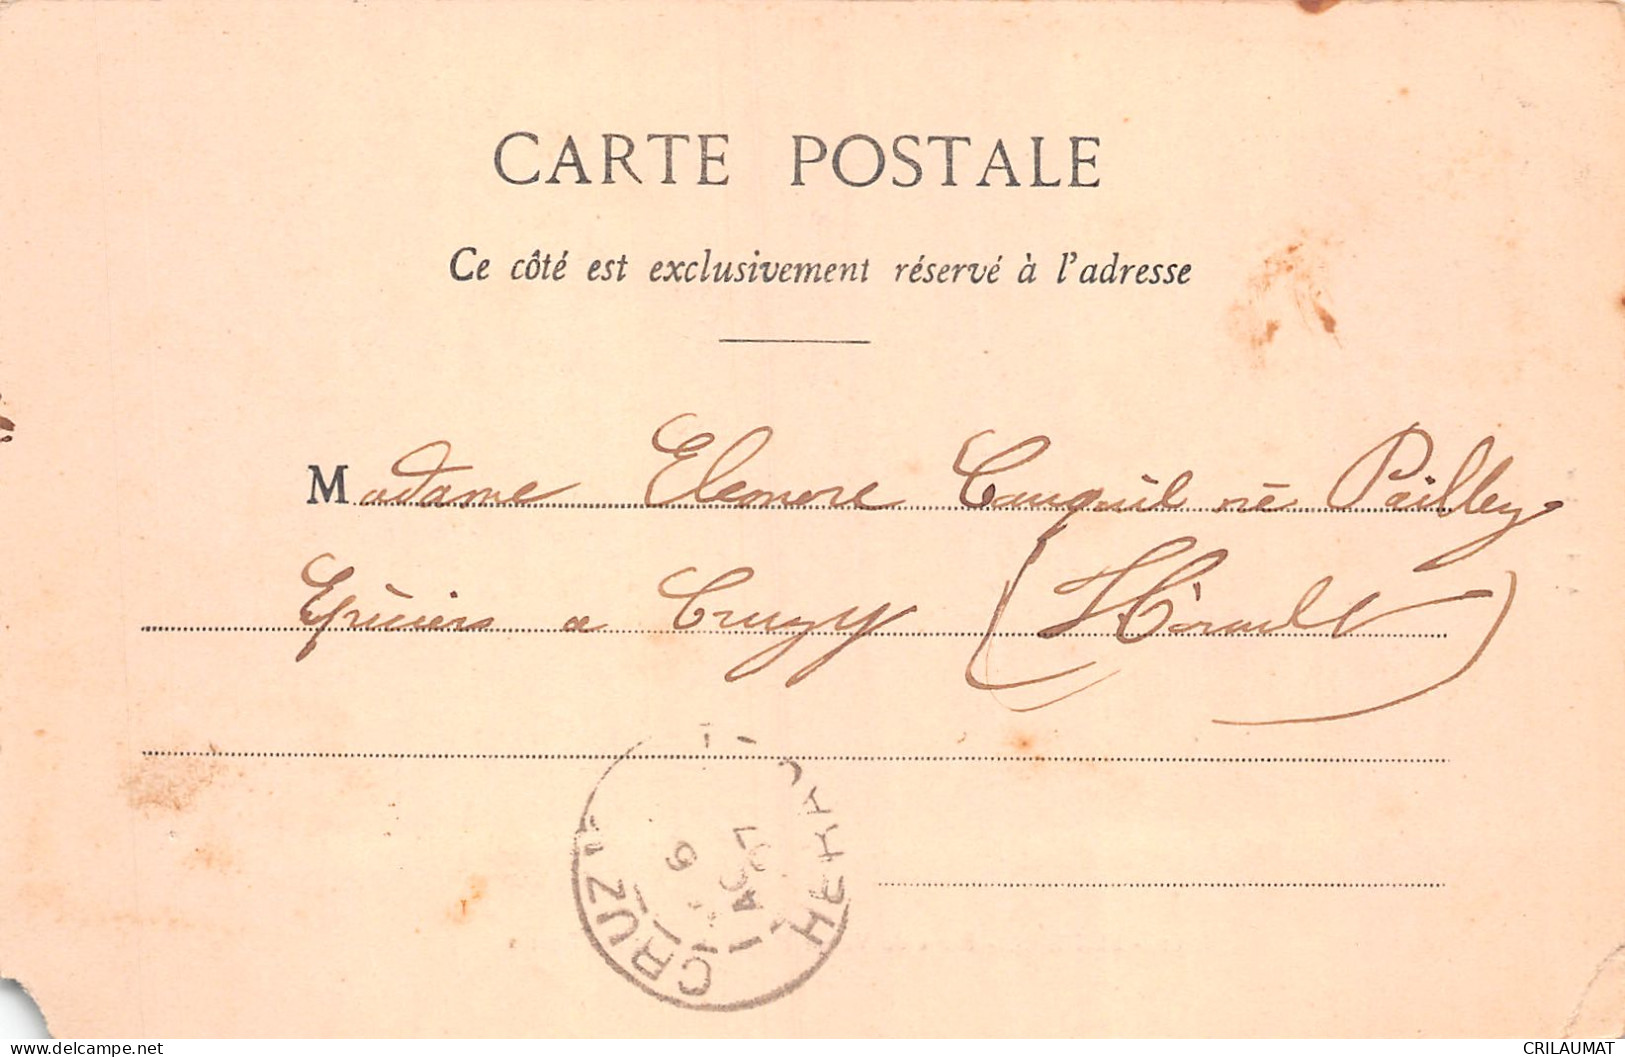 CARTE POSTALE
Ce côté est exclusivement réservé à l'adresse
Madame Eleonore Cauquil né Pailley
Epiciers a Cruzy (Hérault)
CRUZY
HERAULT
6
AOUT
Delcampe.net
CRILAUMAT